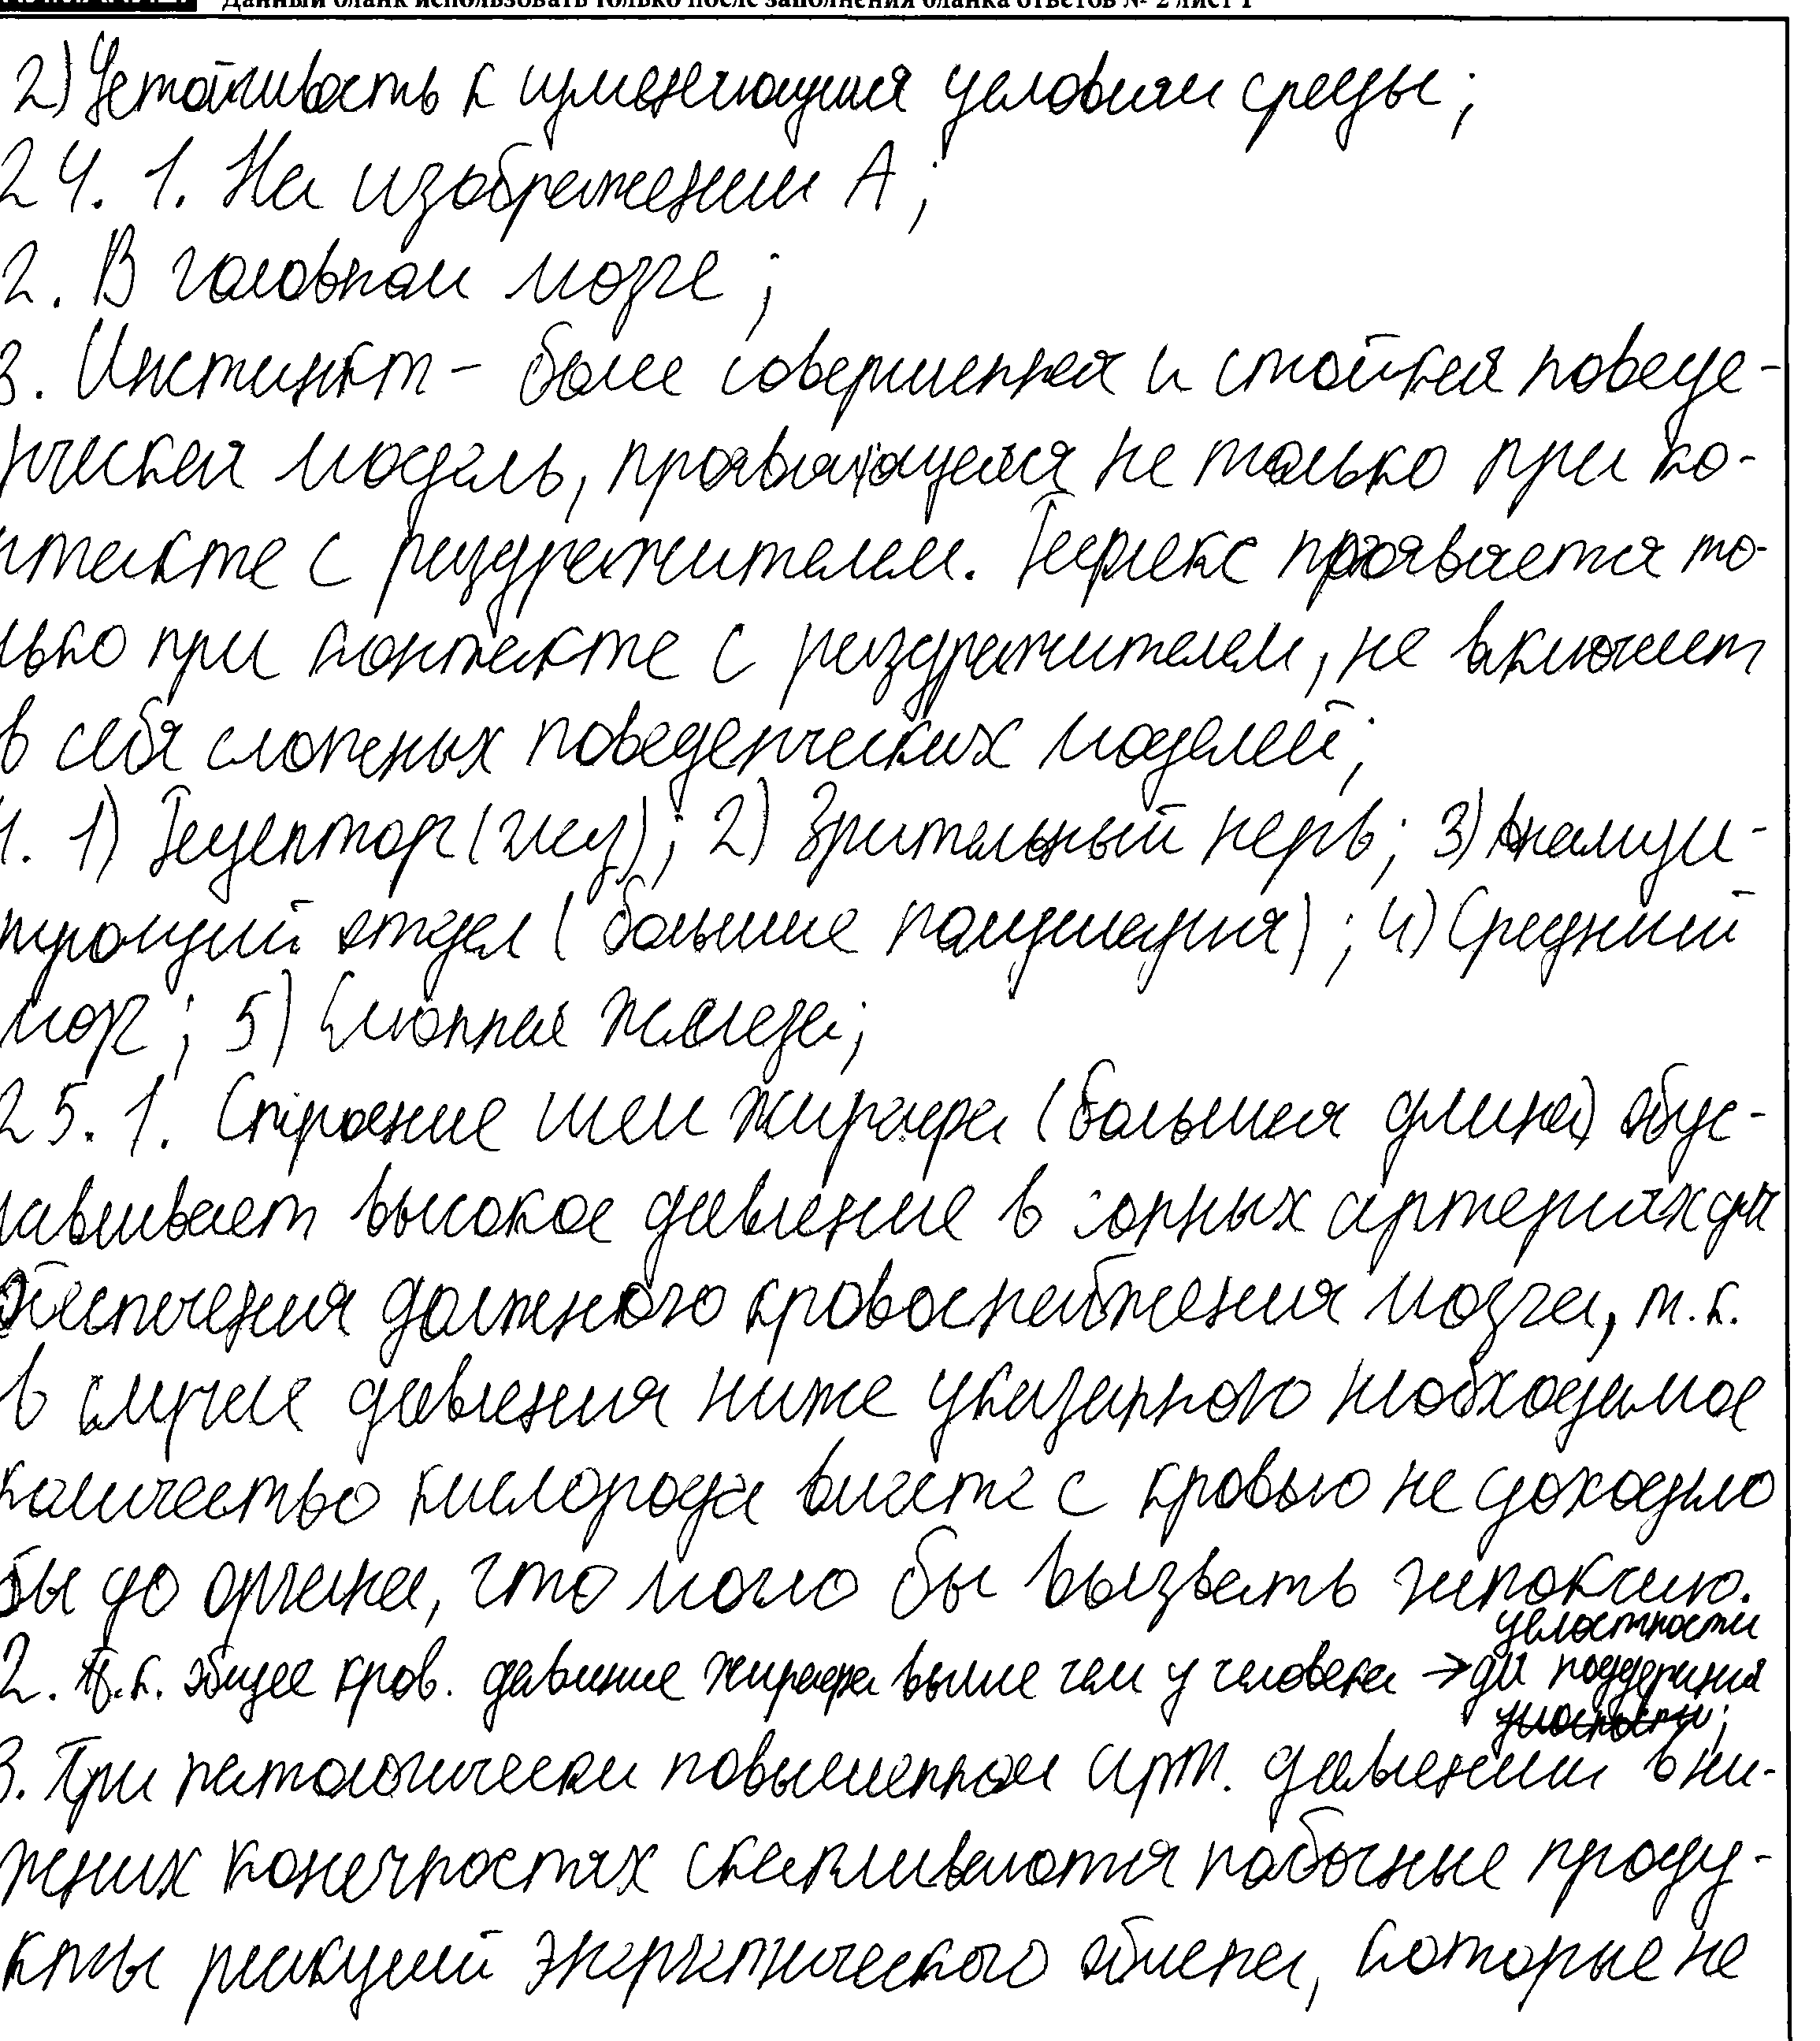 Данный бланк использовать только после заполнения бланка ответов № 2 лист 1
2) Устойчивость к изменяющимся условиям среды;
24. 1. На изображении А;
2. В головном мозге;
3. Инстинкт – более совершенная и стойкая поведе-
нческая модель, проявляющаяся не только при ко-
нтакте с раздражителем. Рефлекс проявляется то-
лько при контакте с раздражителем, не включает
в себя сложных поведенческих моделей;
4. 1) Рецептор (глаз); 2) Зрительный нерв; 3) Анализи-
отдел (большие полушария); 4) Средний
мозг; 5) Слюнная железа;
25. 1. Строение шеи жирафа (большая длина) обус-
лавливает высокое давление в сонных артериях для
обеспечения должного кровоснабжения мозга, т.к.
в случае давления ниже указанного необходимое
количество кислорода вместе с кровью не доходило
бы до органа, что могло бы вызвать гипоксию.
целостности
2. Т.к. общее кров. давление жирафа выше чем у человека → для
3. При патологически повышенном арт. давлении в ни-
жних конечностях скапливаются побочные проду-
кты реакций энергетического обмена, которые не